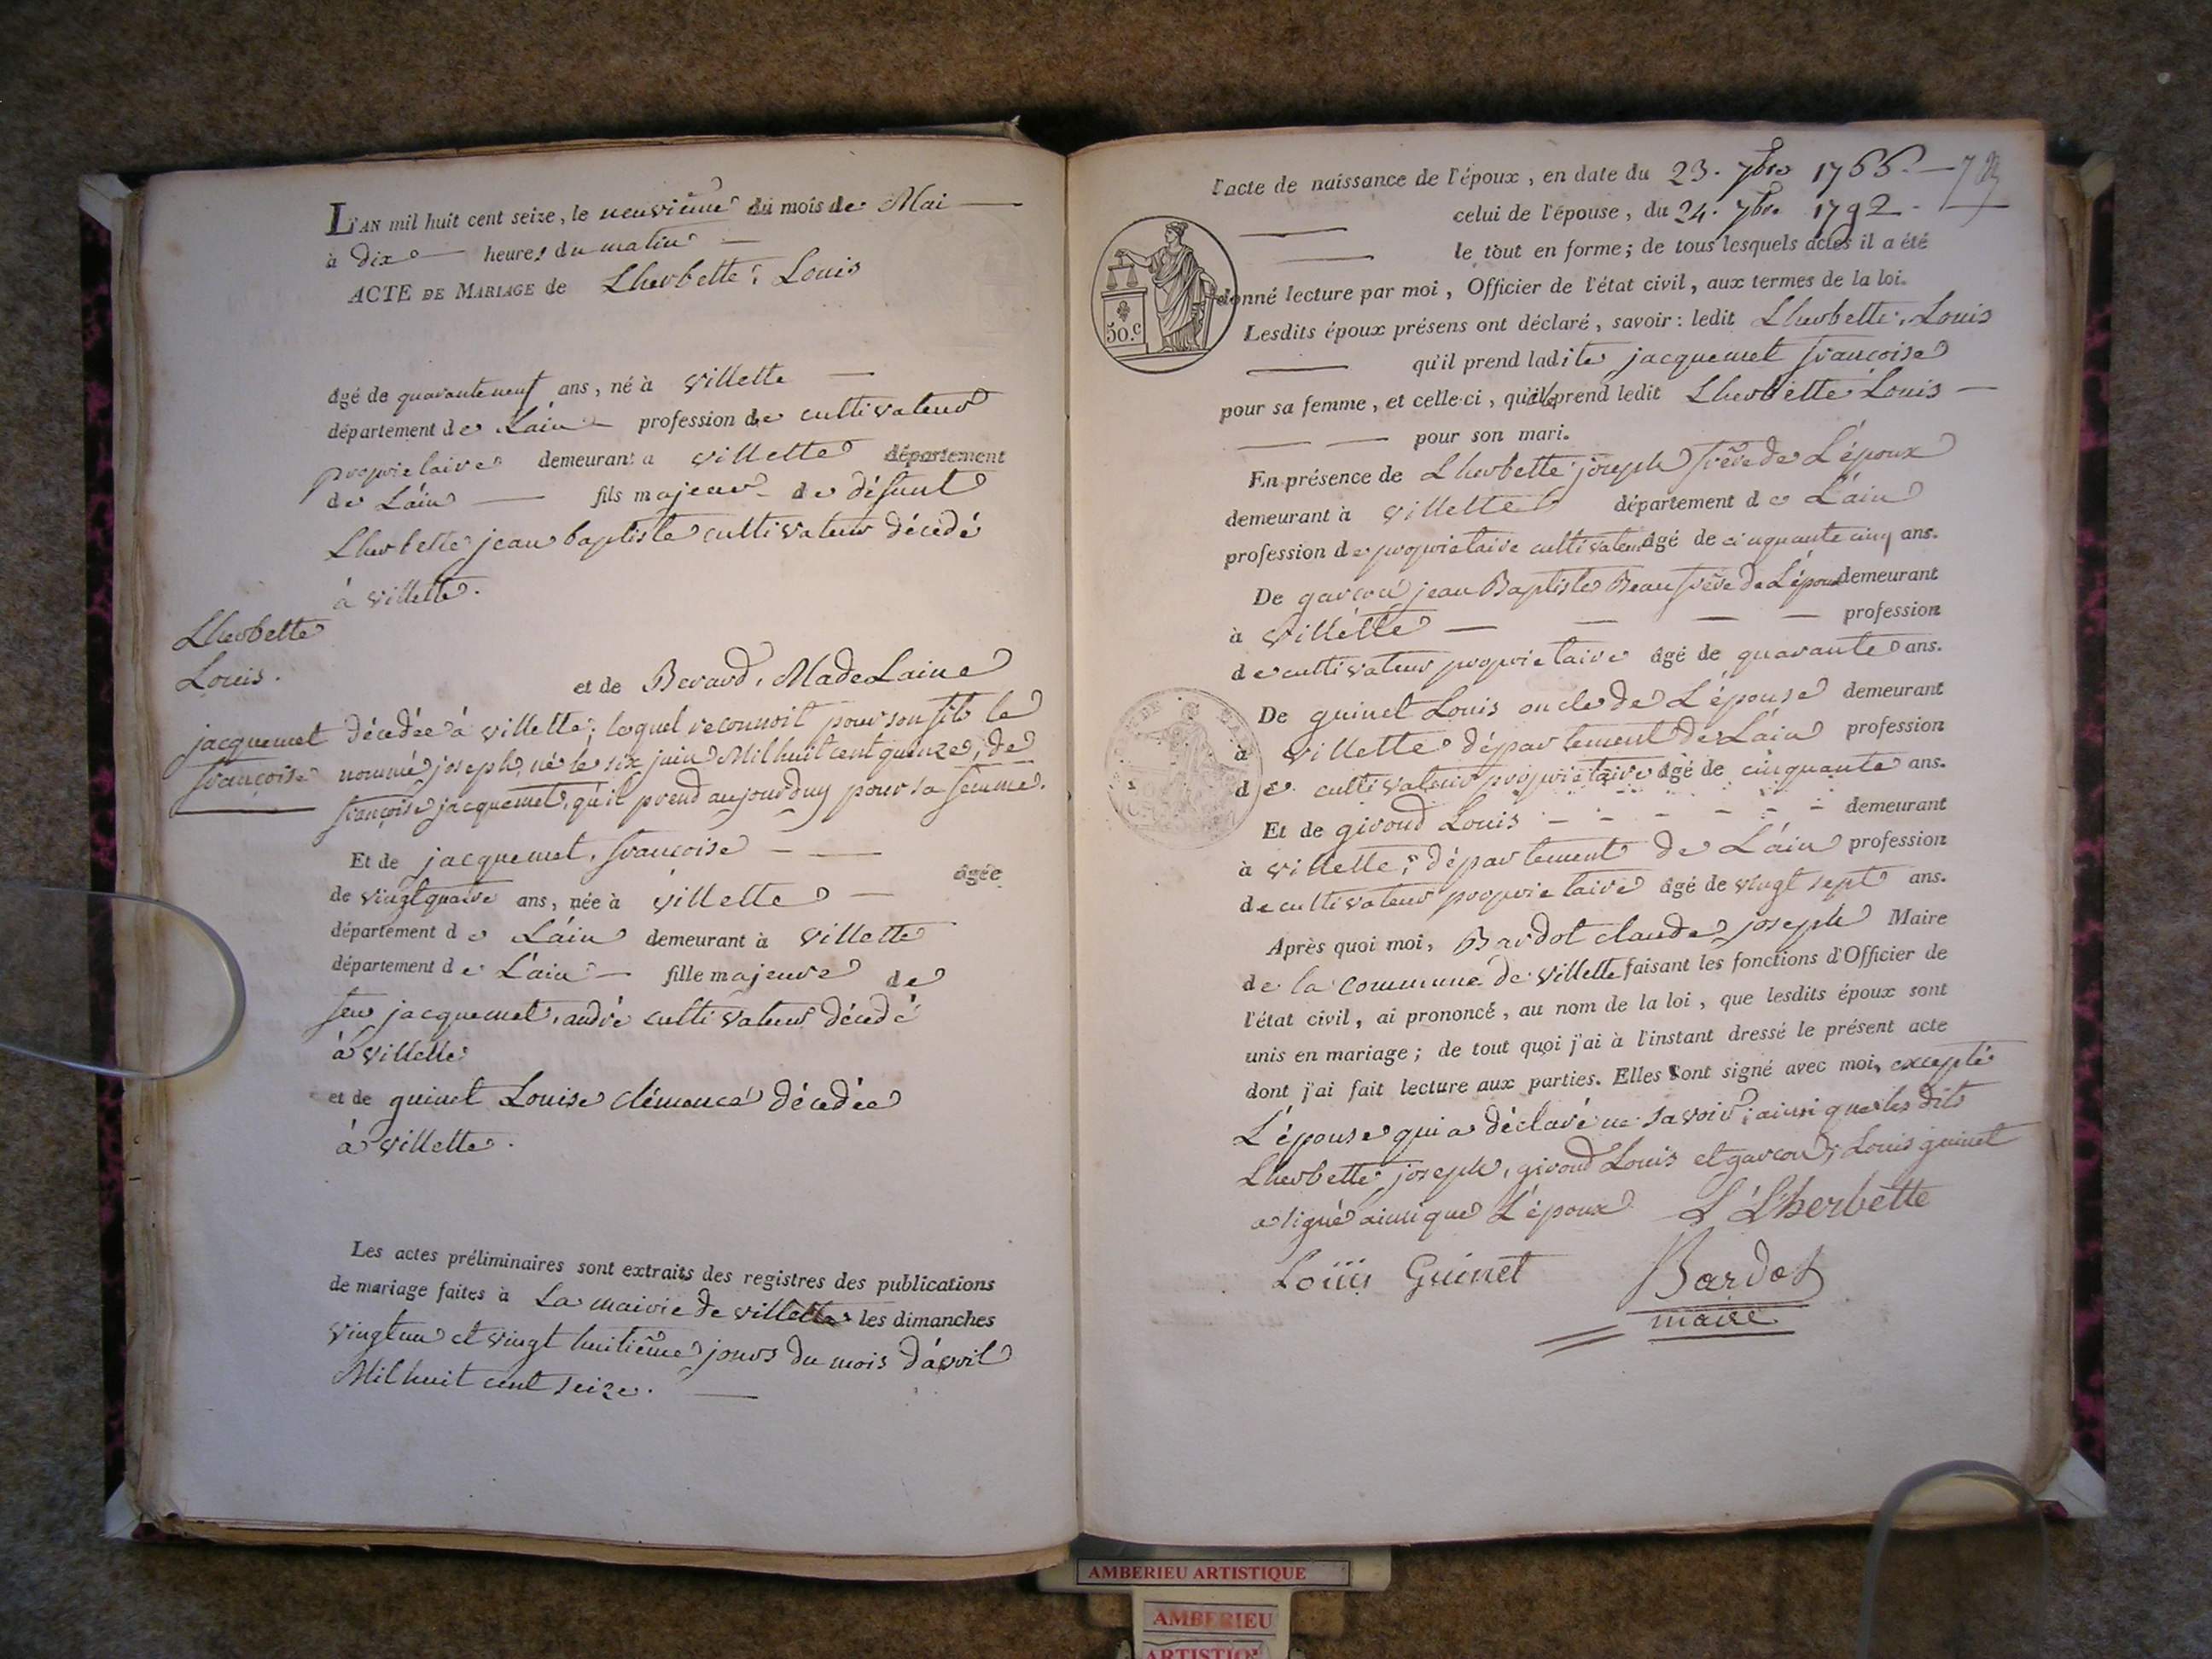 L'AN mil huit cent seize, le neuvième du mois de Mai
à dix heures du matin
ACTE DE MARIAGE de Lherbette, Louis
âgé de quaranteneuf ans, né à villette
département de Láin profession de cultivateur
proprietaire demeurant a villette département
de Láin fils majeur de défunt
Lherbette jean baptiste cultivateur décédé
à villette.
Lherbette
Louis.
et de Berard, MadeLaine
jacquemet
françoise
décédée à villette; lequel reconnoit pour son fils le
nommé joseph, né le six juin Mil huit cent quinze, de
françoise jacquemet, qu'il prend aujourduy pour sa femme.
Et de jacquemet, françoise
âgée
de vingtquatre ans, née à villette
département de Láin demeurant à villette
département de Láin fille majeure de
feu jacquemet, andré cultivateur décédé
à villette
et de guinet Louise clémence décédée
à villette.
Les actes préliminaires sont extraits des registres des publications
de mariage faites à La mairie de villette les dimanches
vingtun et vingt huitième jours du mois dávril
Mil huit cent seize.
l'acte de naissance de l'époux, en date du 23. 7bre 1766.
celui de l'épouse, du 24. 7bre 1792.
le tout en forme; de tous lesquels actes il a été
donné lecture par moi, Officier de l'état civil, aux termes de la loi.
50.c
Lesdits époux présens ont déclaré, savoir: ledit Lherbette, Louis
qu'il prend ladite jacquemet françoise
pour sa femme, et celle-ci, qu'elle prend ledit Lherbette Louis
pour son mari.
En présence de Lherbette joseph frère de L'époux
demeurant à villette département de Láin
profession de proprietaire cultivateur âgé de cinquante cinq ans.
De garcon jean Baptiste Beaufrère de L'époux demeurant
à villette profession
de cultivateur proprietaire âgé de quarante ans.
De guinet Louis oncle de L'épouse demeurant
à villette département de Láin profession
de cultivateur proprietaire âgé de cinquante ans.
Et de giroud Louis demeurant
à villette, département de Láin profession
de cultivateur proprietaire âgé de vingt sept ans.
Après quoi moi, Bardot claude joseph Maire
de la commune de villette faisant les fonctions d'Officier de
l'état civil, ai prononcé, au nom de la loi, que lesdits époux sont
unis en mariage; de tout quoi j'ai à l'instant dressé le présent acte
dont j'ai fait lecture aux parties. Elles ont signé avec moi, excepté
L'épouse qui a déclaré ne savoir, ainsi que les dits
Lherbette joseph, giroud Louis et garcon, Louis guinet
a signé ainsi que L'époux L Lherbette
Louis Guinet Bardot
maire
AMBERIEU ARTISTIQUE
AMBERIEU
ARTISTIQU